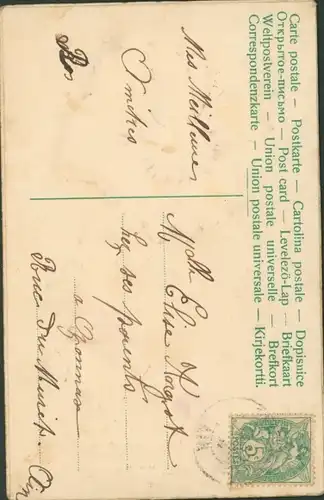 Carte postale — Postkarte — Cartolina postale — Dopisnice
Открытое-письмо — Post card — Levelező-Lap — Briefkaart
Weltpostverein — Union postale universelle — Brefkort
Correspondenzkarte — Union postale universale — Kirjekortti.
Mes Meilleures
Amitiés
Melle Elise
chez ses parents
a Oyonnax
Rue du
5